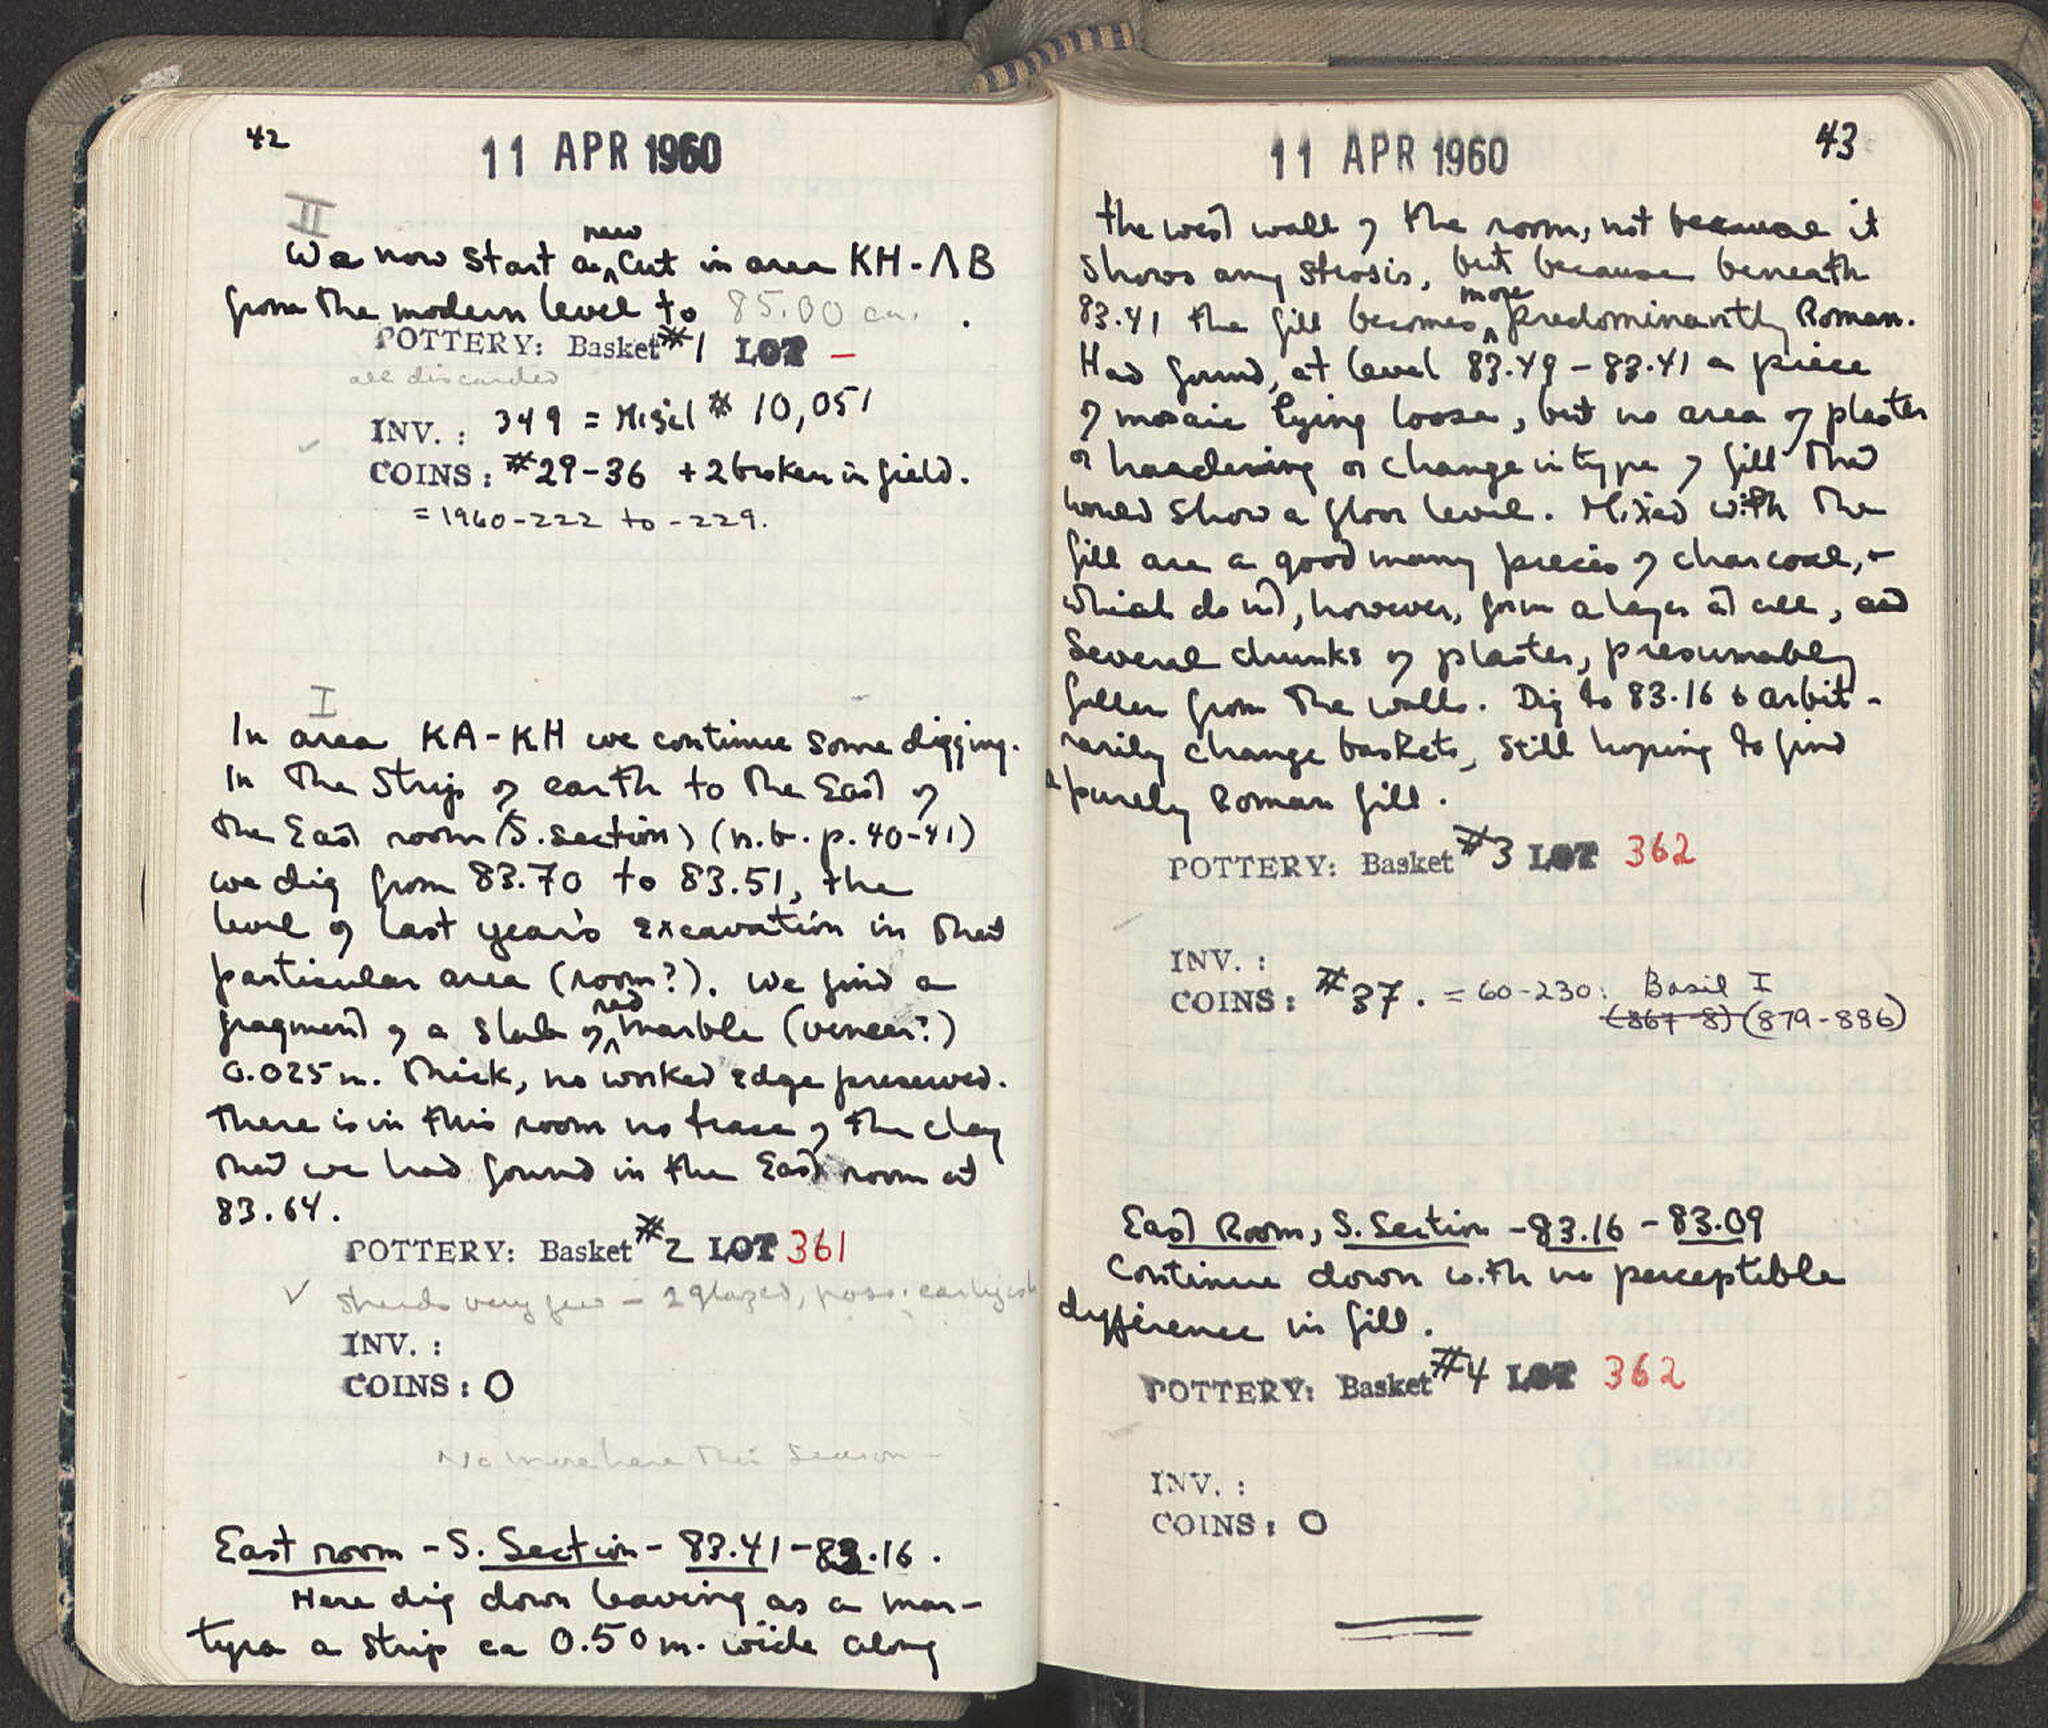 42
11 APR 1960
II
We now start a new cut in area KH-ΛB
from the modern level to 85.00 ca. .
POTTERY: Basket #1 LOT —
all discarded
INV.: 349 = Misc # 10,051
COINS: #29-36 + 2 broken in field.
= 1960-222 to -229.
I
In area KA-KH we continue some digging.
In the strip of earth to the East of
the East room (S. section) (n.b. p. 40-41)
we dig from 83.70 to 83.51, the
level of last year's excavation in that
particular area (room?). We find a
fragment of a slab of red marble (veneer?)
0.025 m. thick, no worked edge preserved.
There is in this room no trace of the clay
that we had found in the East room at
83.64.
POTTERY: Basket #2 LOT 361
✓ sherds very few - 2 glazed, poss. early
INV.:
COINS: 0
No more here this season -
East room - S. Section - 83.41-83.16.
Here dig down leaving as a mar-
tyra a strip ca 0.50 m. wide along
43
11 APR 1960
the west wall of the room, not because it
shows any strosis, but because beneath
83.41 the fill becomes more predominantly Roman.
Had found, at level 83.49-83.41 a piece
of mosaic lying loose, but no area of plaster
or hardening or change in type of fill that
would show a floor level. Mixed with the
fill are a good many pieces of charcoal, -
which do not, however, form a layer at all, and
several chunks of plaster, presumably
fallen from the walls. Dig to 83.16 & arbit-
rarily change baskets, still hoping to find
a purely Roman fill.
POTTERY: Basket #3 LOT 362
INV.:
COINS: #37. = 60-230: Basil I
(867-8) (879-886)
East Room, S. Section - 83.16 - 83.09
Continue down with no perceptible
difference in fill.
POTTERY: Basket #4 LOT 362
INV.:
COINS: 0